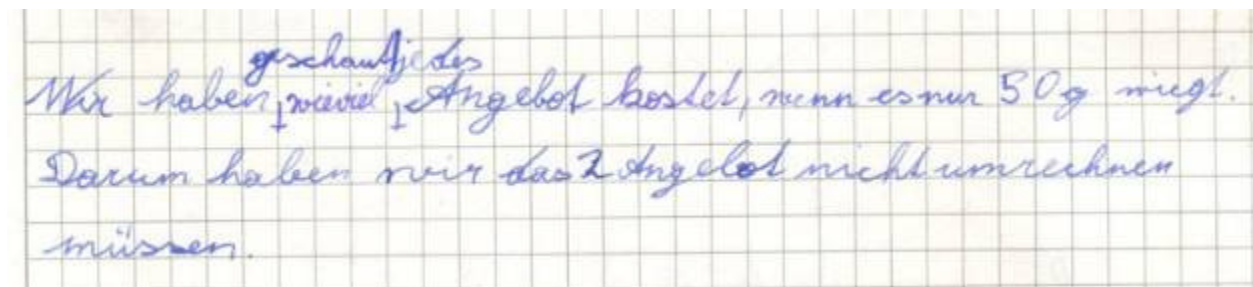 geschaut jedes
Wir haben, wieviel Angebot kostet, wenn es nur 50g wiegt.
Darum haben wir das 2 Angebot nicht umrechnen
müssen.